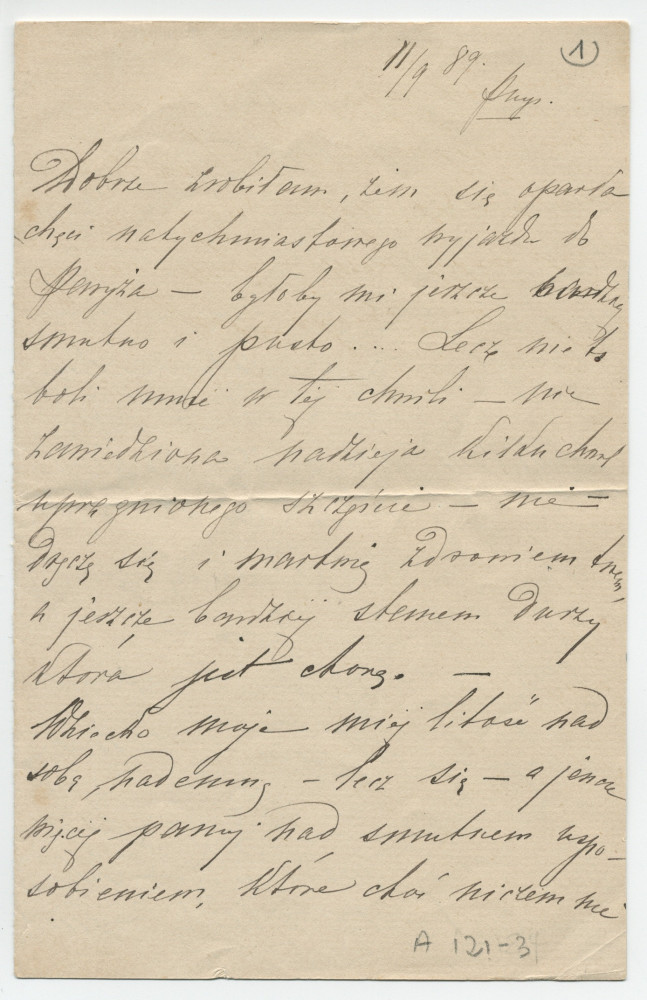 1
11/9 89.
Dobrze zrobiłam, żem się oparła
chęci natychmiastowego wyjazdu do
Paryża — byłoby mi jeszcze bardziej
smutno i pusto .... Lecz nie to
boli mnie w tej chwili — nie
zawiedziona nadzieja kilku chwil
upragnionego szczęścia — nie —
Dręczę się i martwię zdrowiem twem,
a jeszcze bardziej stanem duszy
która jest chorą. —
Dziecko moje miej litość nad
sobą, nademną — lecz się — a jeszcze
więcej panuj nad smutnem uspo-
sobieniem, które choć niczem nie
A 121-3